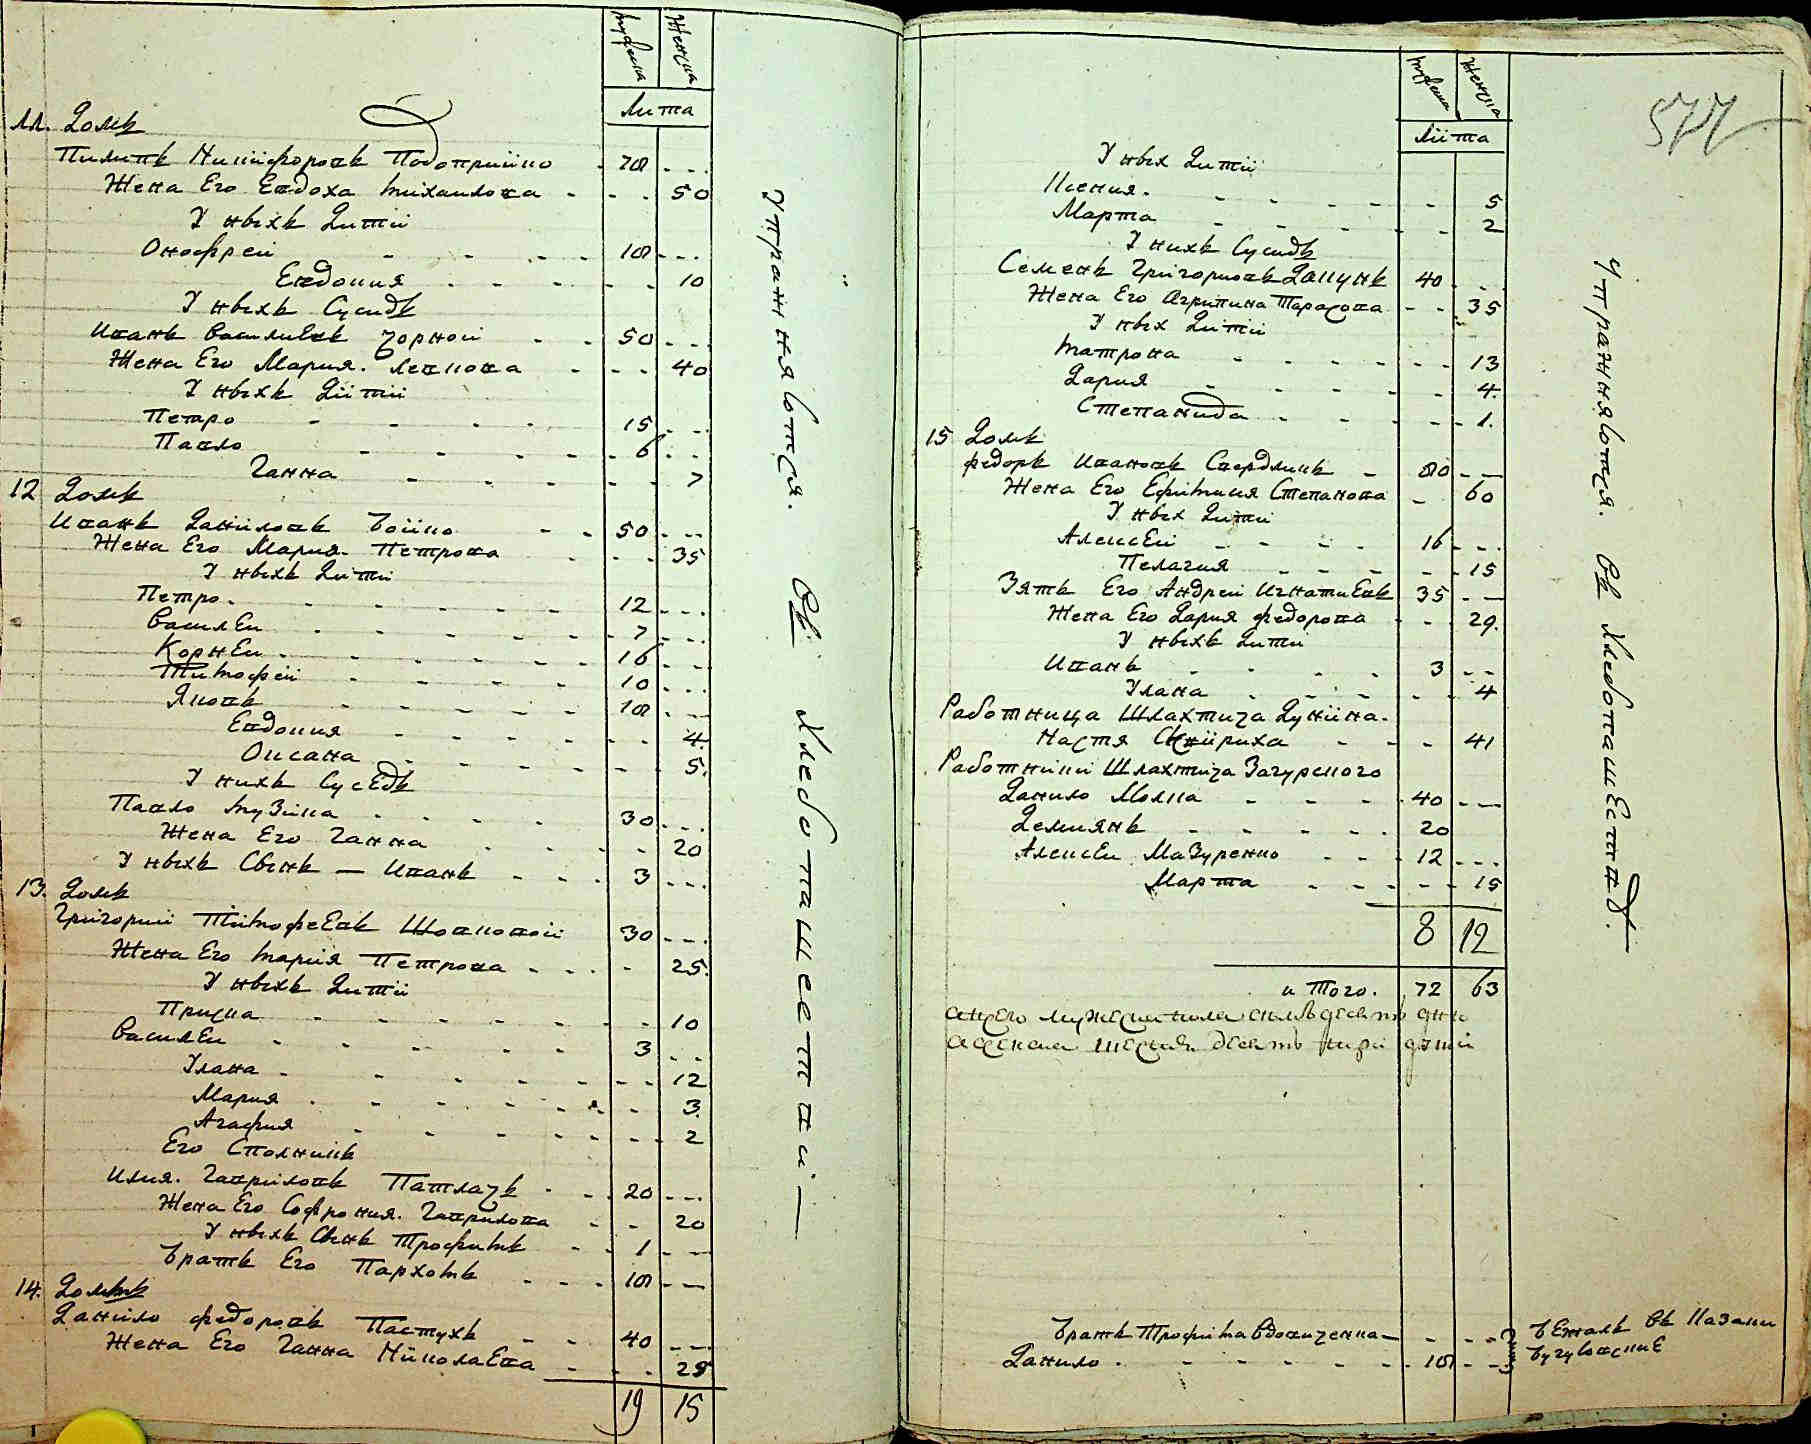 мужеска женска
Лита
11. Домъ
Пилипъ Никифоровъ Подоприйко - 78 - - -
Жена Его Евдоха Михаилова - - - 50
У ныхъ Дитий
Онофрей - - - - 18 - - -
Евдокия - - - - - 10
У ныхъ Сусидъ
Иванъ Василиевъ Чорной - - 50 - - -
Жена Его Мария Левкова - - - 40
У ныхъ Дитий
Петро - - - - 15 - - -
Павло - - - - 6 - - -
Ганна - - - - - 7
12 Домъ
Иванъ Данииловъ Бойко - - 50 - - -
Жена Его Мария Петрова - - - 35
У ныхъ Дити
Петро. - - - - 12 - - -
Василей - - - - 7 - - -
Корней - - - - 16 - - -
Тимофей - - - - 10 - - -
Яковъ - - - - 18 - - -
Евдокия - - - - - 4.
Оксана - - - - - 5.
У нихъ Сусѣдъ
Павло Музика - - - 30 - - -
Жена Его Ганна - - - 20
У ныхъ Сынъ — Иванъ - - - 3 - - -
13. Домъ
Григорий Тимофеевъ Шовковой 30 - - -
Жена Его Мария Петрова - - - 25.
У ныхъ Дитий
Приська - - - - - 10
Василей - - - - 3 - -
Улана - - - - - 12
Мария - - - - - 3.
Агафия - - - - - 2
Его Сполникъ
Илия Гавриловъ Патлачъ - - 20 - - -
Жена Его Софрония Гаврилова - - 20
У ныхъ Сынъ Трофимъ - - 1 - -
Братъ Его Пархомъ - - - 18 - -
14. Домъ
Данило Федоровъ Пастухъ - - 40 - - -
Жена Его Ганна Николаева - - - 25
19 15
Упражняются. Въ Хлебопашестви —
577
мужеска женска
Лита
У ныхъ Дитий
Ксения. - - - - - 5
Марта - - - - - 2
У нихъ Сусидъ
Семенъ Григориовъ Дацунъ 40 - - -
Жена Его Агрипина Тарасова - - 35
У ных Дитий
Матрона - - - - - 13
Дария - - - - - 4.
Степанида - - - - - 1.
15 Домъ
Федоръ Ивановъ Свердликъ - 80 - -
Жена Его Ефимия Степанова - 60
У ных Дитий
Алексей - - - - 16 - - -
Пелагия - - - - - 15
Зять Его Андрей Игнатиевъ 35 - -
Жена Его Дария Федорова - - - 29.
У ныхъ Дити
Иванъ - - - - 3 - -
Улана - - - - - 4
Работница Шляхтича Дуніна -
Настя - - - 41
Работніки Шляхтича Загурского
Данило - - - 40 - -
Демиянъ - - - - 20
Алексей Мазуренко - - - 12 - - -
Марта - - - - - 15
8 12
и Того. 72 63
Братъ Трофима - - - -
Данило. - - - - - 18 - - -
Бежалъ въ Казани
Упражняются. Въ Хлебопашествѣ.